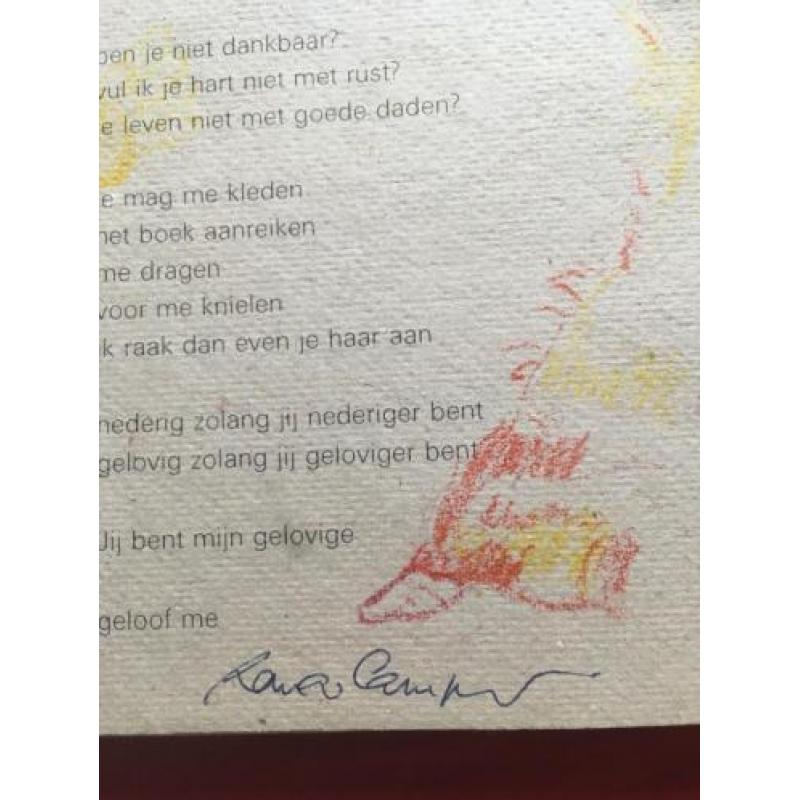 ben je niet dankbaar?
vul ik je hart niet met rust?
e leven niet met goede daden?
e mag me kleden
het boek aanreiken
me dragen
voor me knielen
k raak dan even je haar aan
nederig zolang jij nederiger bent
gelovig zolang jij geloviger bent
Jij bent mijn gelovige
geloof me